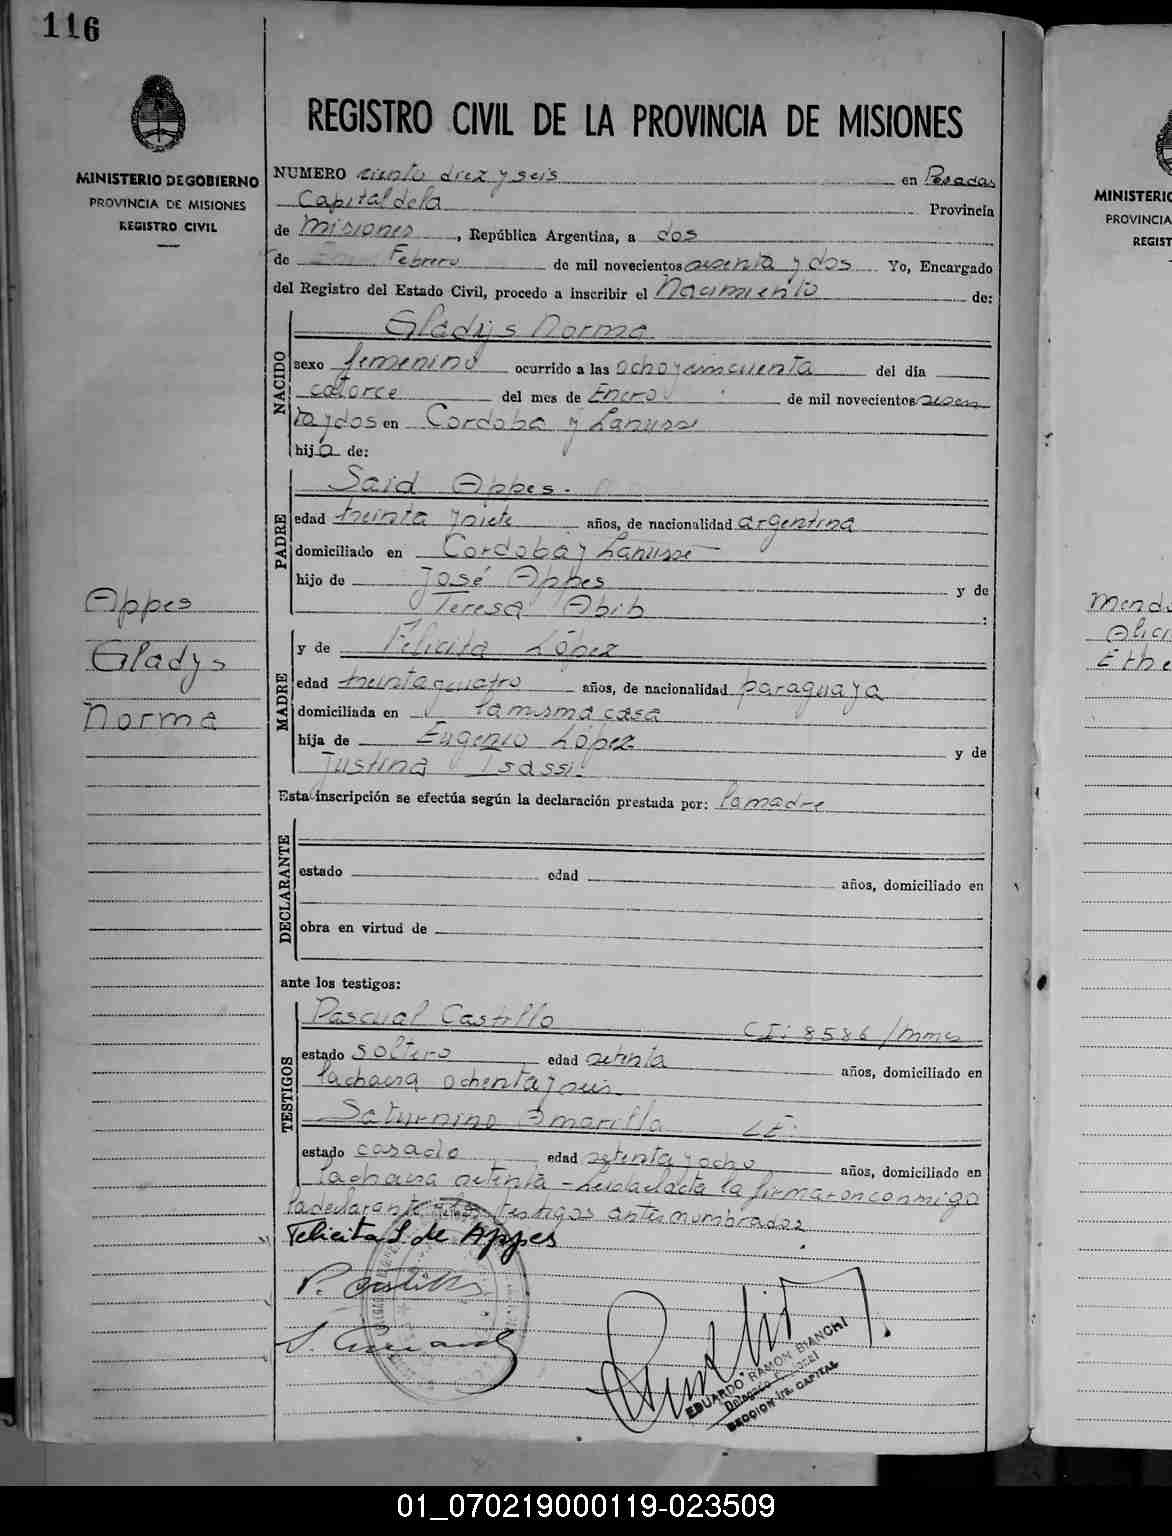 116
MINISTERIO DE GOBIERNO
PROVINCIA DE MISIONES
REGISTRO CIVIL
Appes
Gladys
Norma
REGISTRO CIVIL DE LA PROVINCIA DE MISIONES
NUMERO ciento diez y seis en Posadas
Capital de la Provincia
de Misiones, República Argentina, a dos
de Febrero de mil novecientos sesenta y dos Yo, Encargado
del Registro del Estado Civil, procedo a inscribir el Nacimiento de:
NACIDO
Gladys Norma
sexo femenino ocurrido a las ocho y cincuenta del día
catorce del mes de Enero de mil novecientos sesen
ta y dos en Cordoba y Lanusse
hija de:
PADRE
Said Appes.
edad treinta y siete años, de nacionalidad argentina
domiciliado en Cordoba y Lanusse
hijo de José Appes y de
Teresa Abib :
MADRE
y de Felicita López
edad treinta y cuatro años, de nacionalidad paraguaya
domiciliada en la misma casa
hija de Eugenio López y de
Justina Isassi.
Esta inscripción se efectúa según la declaración prestada por: la madre
DECLARANTE
estado edad años, domiciliado en
obra en virtud de
ante los testigos:
TESTIGOS
Pascual Castillo CI: 8586/mnes
estado soltero edad setenta años, domiciliado en
la chacra ochenta y seis
Saturnino Amarilla LE:
estado casado edad setenta y ocho años, domiciliado en
la chacra setenta - Leida el acta la firmaron conmigo
la declarante y los testigos antes nombrados
Felicita L de Appes
P. Castillo
EDUARDO RAMON BIANCHI
SECCION 1ra. CAPITAL
MINISTERIO
PROVINCIA
REGIST
Ethe
01_070219000119-023509